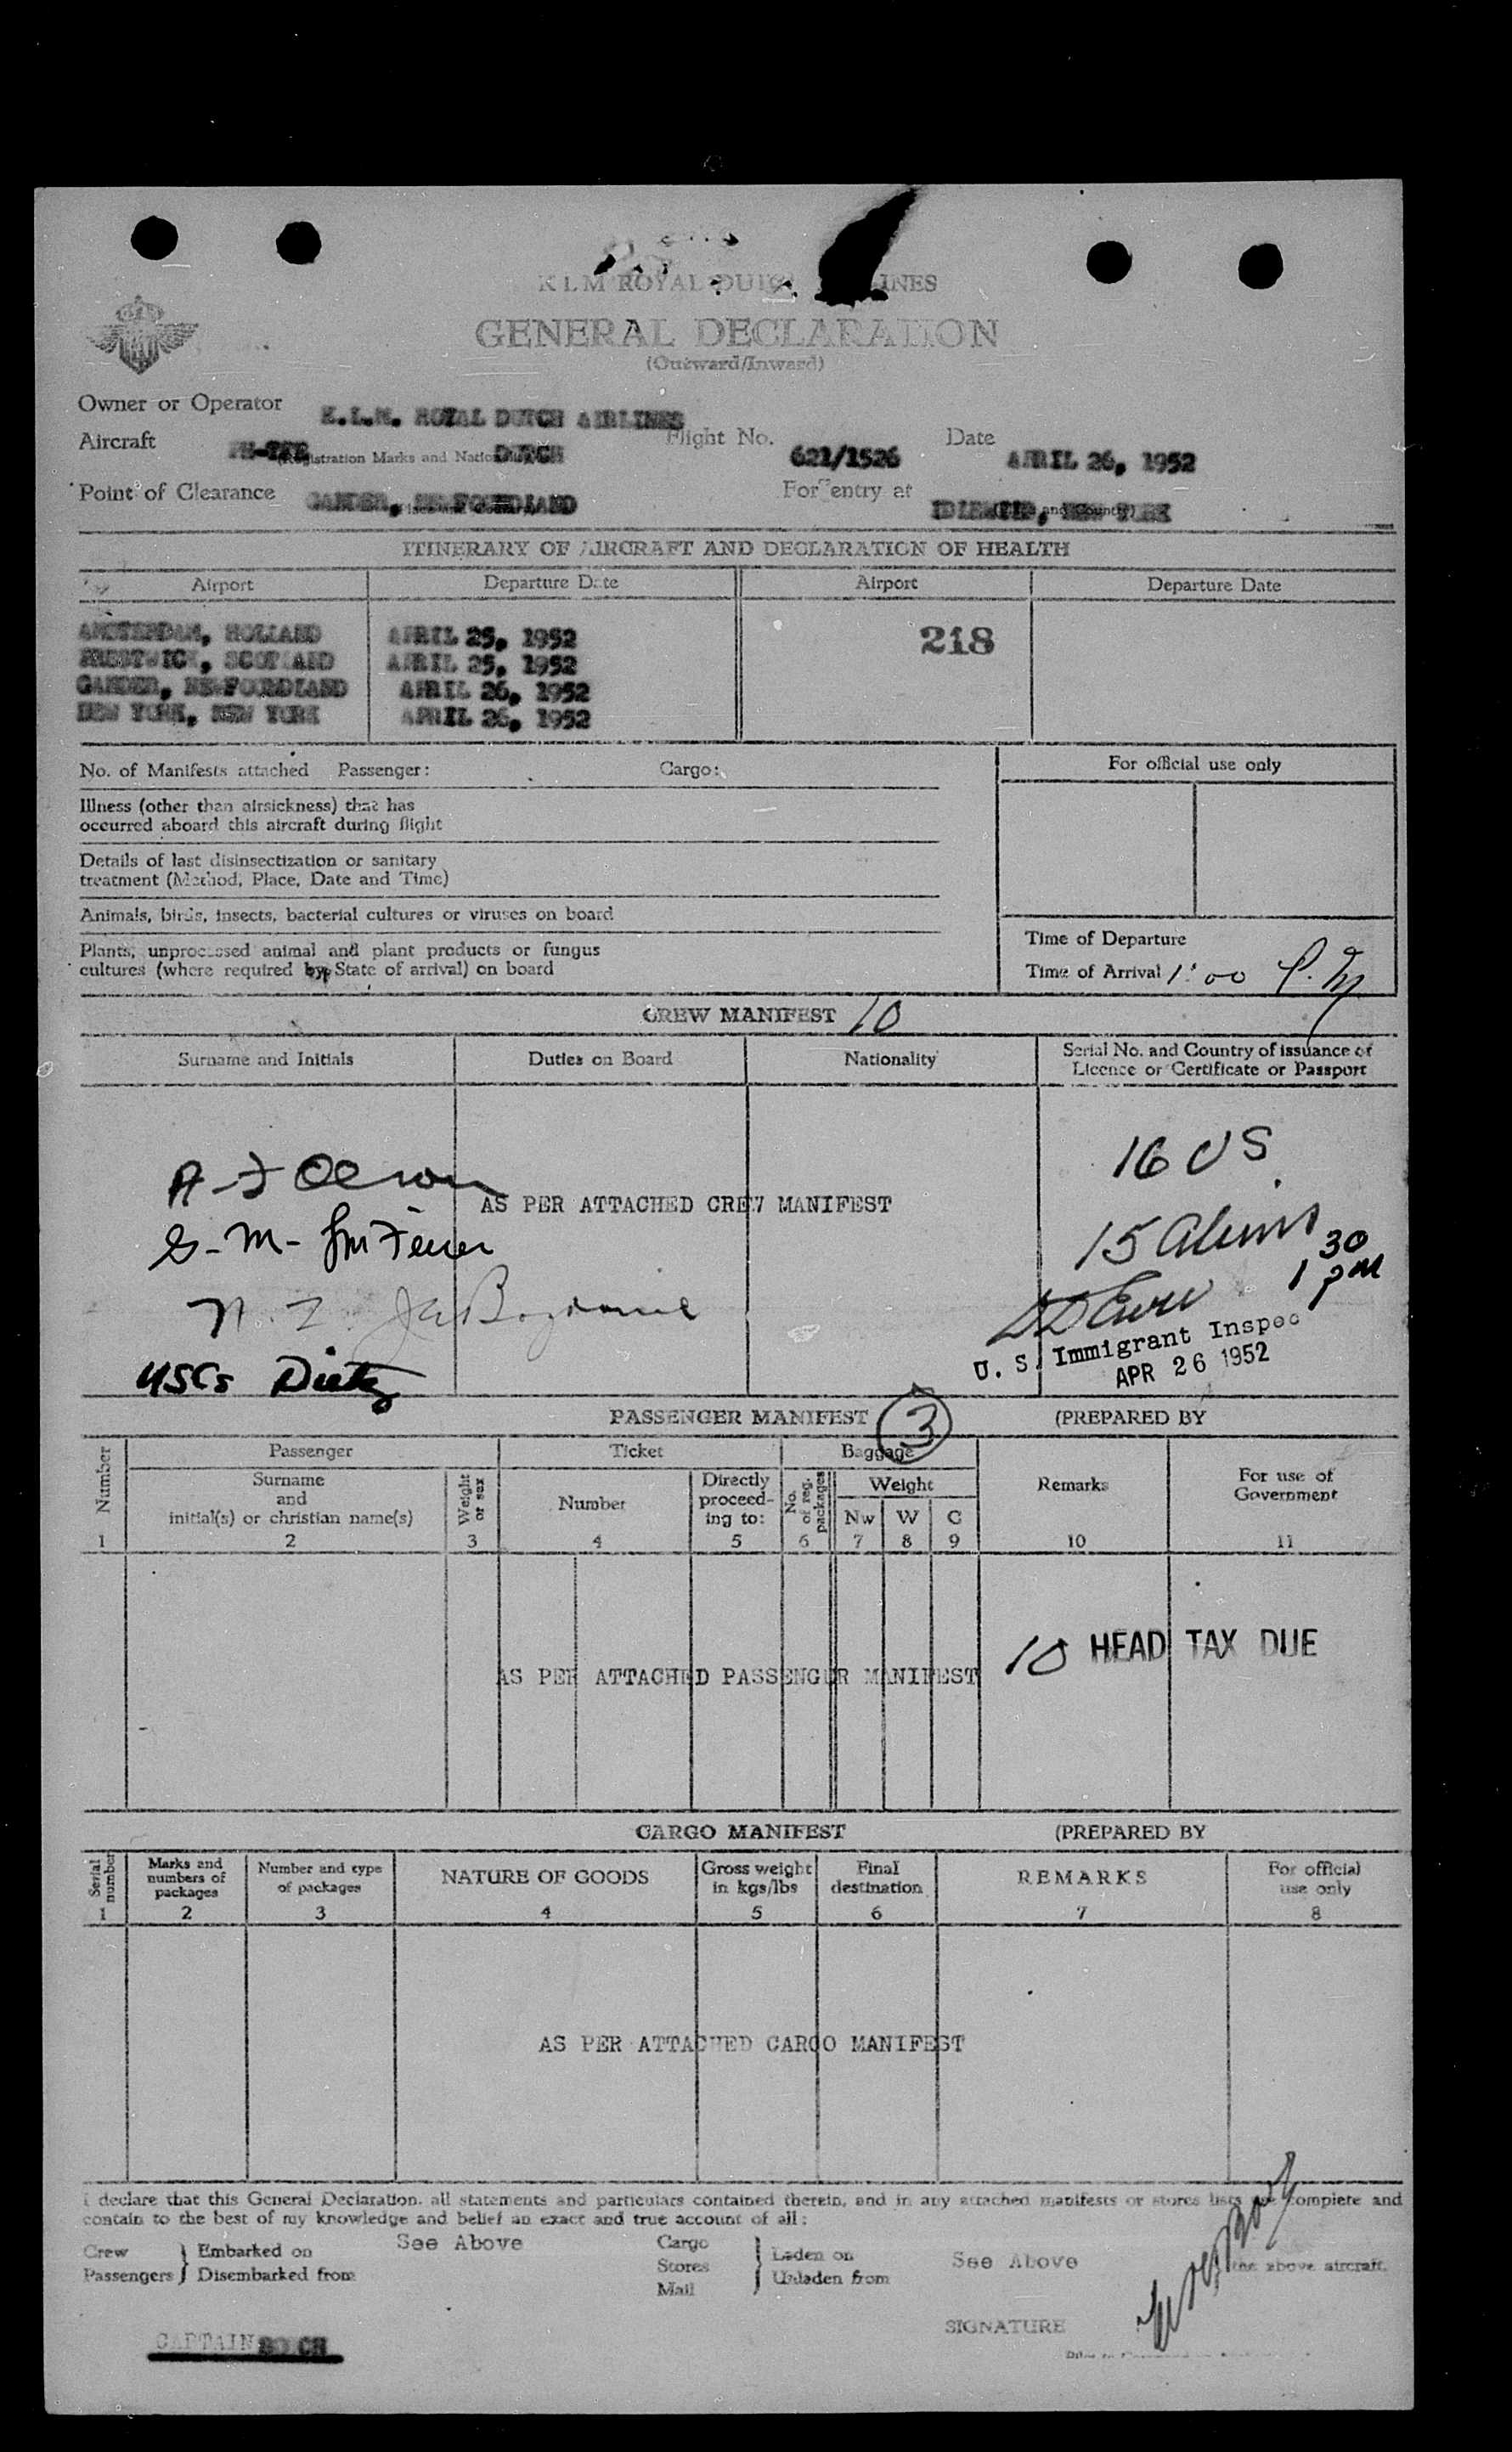 KLM ROYAL DUTCH AIRLINES
GENERAL DECLARATION
(Outward/Inward)
Owner or Operator K.L.M. ROYAL DUTCH AIRLINES
Aircraft (Registration Marks and Nationality) DUTCH Flight No. 621/1526 Date APRIL 26, 1952
Point of Clearance GANDER, NEWFOUNDLAND For entry at IDLEWILD, NEW YORK
ITINERARY OF AIRCRAFT AND DECLARATION OF HEALTH
Airport Departure Date Airport Departure Date
AMSTERDAM, HOLLAND APRIL 25, 1952 218
PRESTWICK, SCOTLAND APRIL 25, 1952
GANDER, NEWFOUNDLAND APRIL 26, 1952
NEW YORK, NEW YORK APRIL 26, 1952
No. of Manifests attached Passenger: Cargo:
For official use only
Illness (other than airsickness) that has
occurred aboard this aircraft during flight
Details of last disinsectization or sanitary
treatment (Method, Place, Date and Time)
Animals, birds, insects, bacterial cultures or viruses on board
Plants, unprocessed animal and plant products or fungus
cultures (where required by State of arrival) on board
Time of Departure
Time of Arrival 1:00 P.M
CREW MANIFEST 10
Surname and Initials Duties on Board Nationality Serial No. and Country of issuance of
Licence or Certificate or Passport
16 US
AS PER ATTACHED CREW MANIFEST
15 Aliens
1 30 PM
U. S. Immigrant Inspec
APR 26 1952
USCS Dietz
PASSENGER MANIFEST 3 (PREPARED BY
Number Passenger Ticket Baggage Remarks For use of
Government
Surname
and
initial(s) or christian name(s)
Weight
or sex
Number
Directly
proceed-
ing to:
No.
of reg.
packages
Weight
Nw W C
1 2 3 4 5 6 7 8 9 10 11
10 HEAD TAX DUE
AS PER ATTACHED PASSENGER MANIFEST
CARGO MANIFEST (PREPARED BY
Serial
number
Marks and
numbers of
packages
Number and type
of packages
NATURE OF GOODS
Gross weight
in kgs/lbs
Final
destination
REMARKS
For official
use only
1 2 3 4 5 6 7 8
AS PER ATTACHED CARGO MANIFEST
I declare that this General Declaration, all statements and particulars contained therein, and in any attached manifests or stores lists are complete and
contain to the best of my knowledge and belief an exact and true account of all:
Crew
Passengers
Embarked on
Disembarked from
See Above
Cargo
Stores
Mail
Laden on
Unladen from
See Above
the above aircraft.
SIGNATURE
CAPTAIN